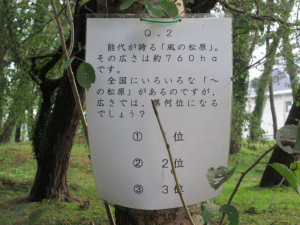 Q.2
能代が誇る「風の松原」。
その広さは約760ha
です。
全国にいろいろな「～
の松原」があるのですが、
広さでは、第何位になる
でしょう?
① 位
② 2位
③ 3位